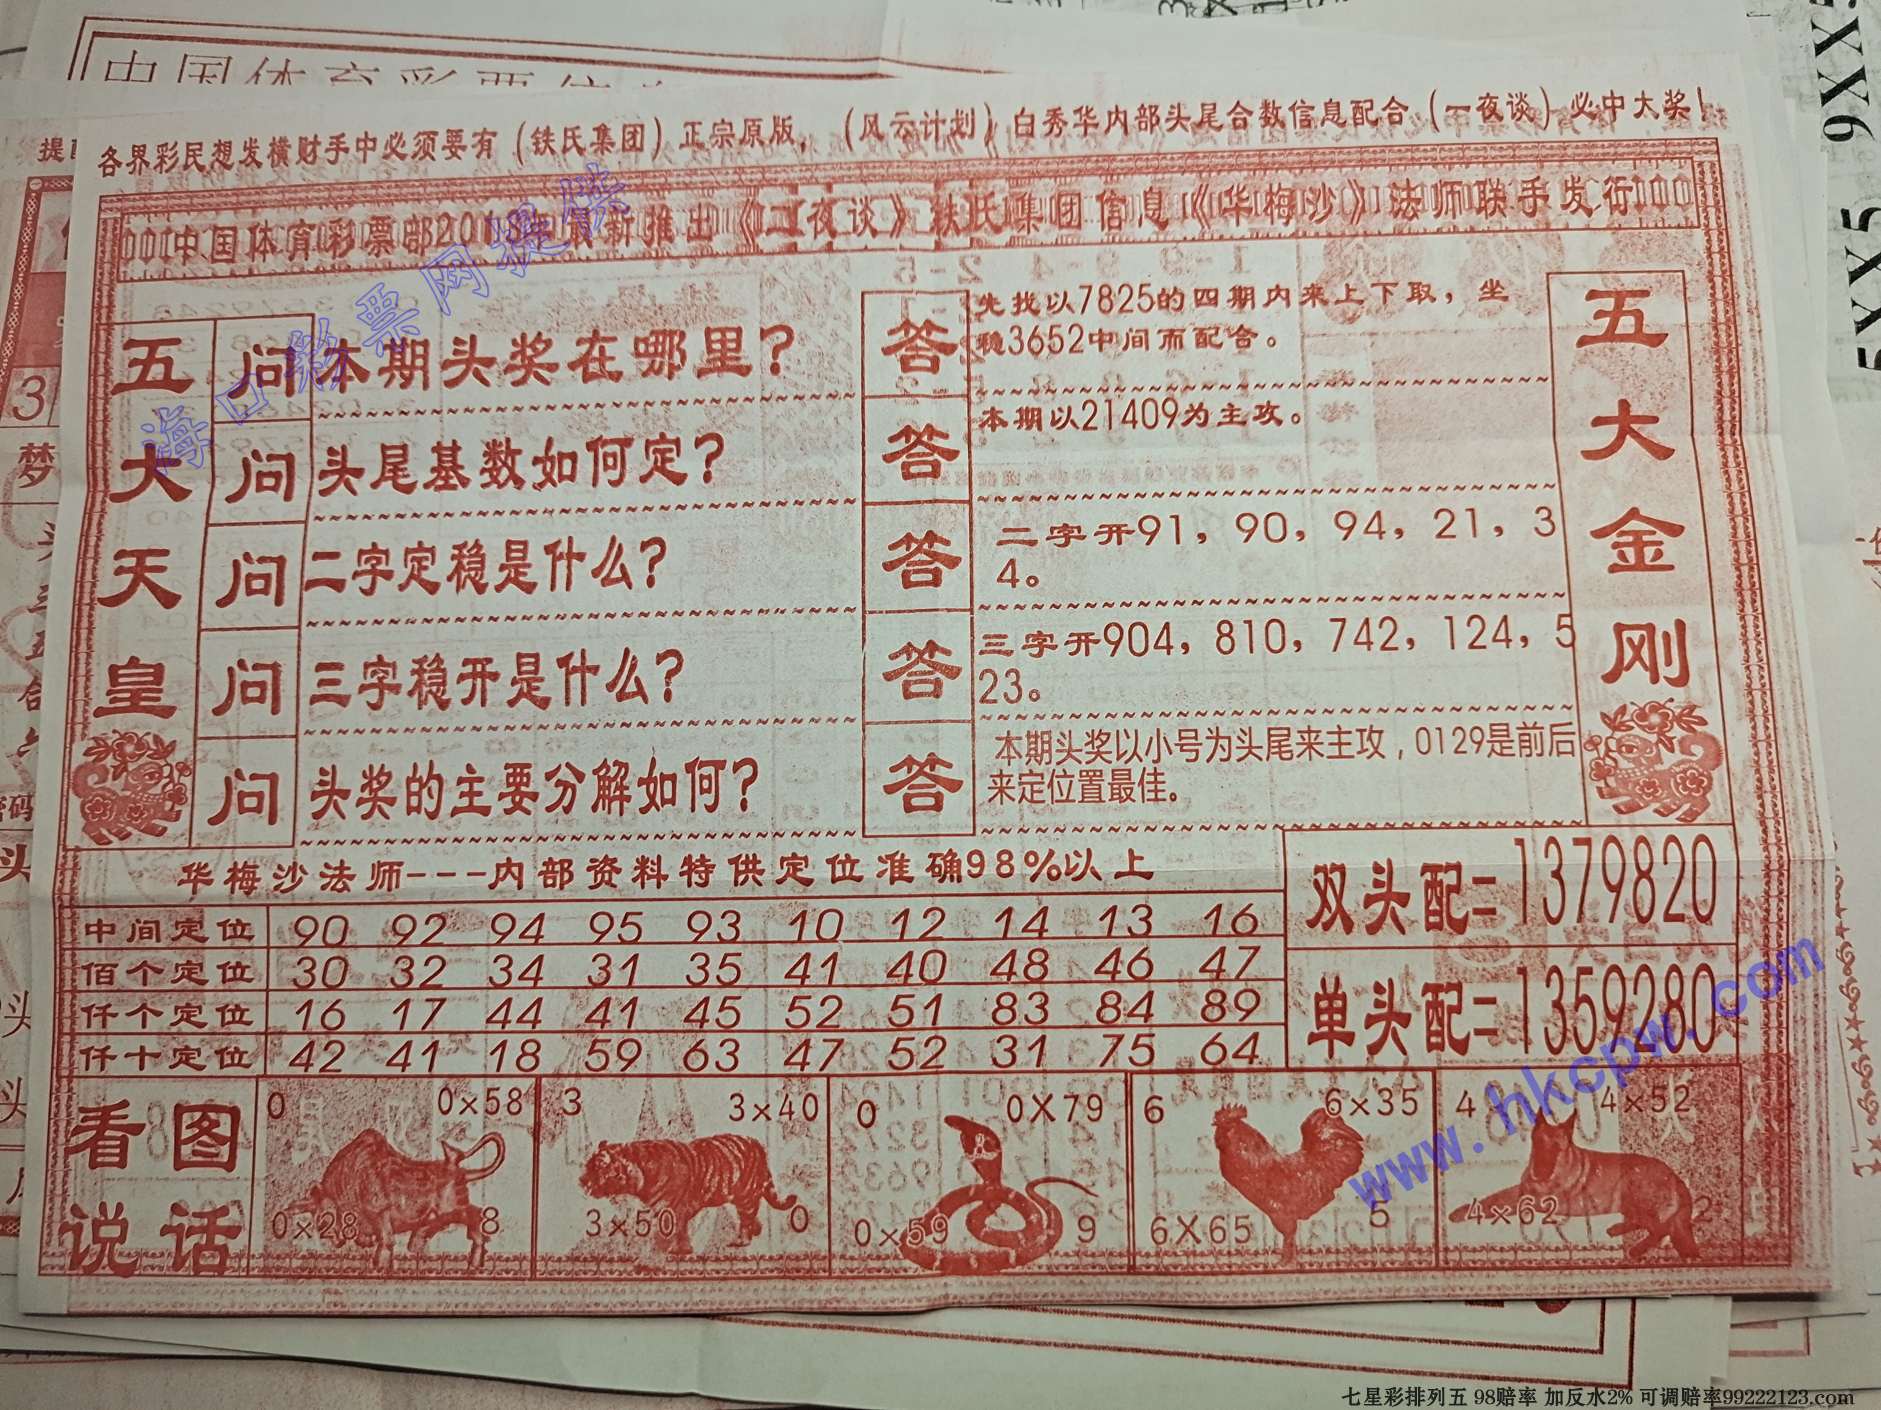 中国体育彩票
各界彩民想发横财手中必须要有（铁氏集团）正宗原版，（风云计划）白秀华内部头尾合数信息配合（一夜谈）必中大奖！
中国体育彩票部201 年最新推出《二夜谈》铁氏集团信息《华梅沙》法师联手发行
海口彩票网提供
五大天皇
问 本期头奖在哪里？
答 先找以7825的四期内来上下取，坐
稳3652中间而配合。
问 头尾基数如何定？
答 本期以21409为主攻。
问 二字定稳是什么？
答 二字开91，90，94，21，3
4。
问 三字稳开是什么？
答 三字开904，810，742，124，5
23。
问 头奖的主要分解如何？
答 本期头奖以小号为头尾来主攻，0129是前后
来定位置最佳。
五大金刚
华梅沙法师---内部资料特供定位准确98%以上
中间定位 90 92 94 95 93 10 12 14 13 16
佰个定位 30 32 34 31 35 41 40 48 46 47
仟个定位 16 17 44 41 45 52 51 83 84 89
仟十定位 42 41 18 59 63 47 52 31 75 64
双头配=1379820
单头配=1359280
看图
说话
0 0×58
0×28 8
3 3×40
3×50 0
0 0X79
0×59 9
6 6×35
6X65 5
4 4×52
4×62 2
www.hkcpw.com
5XX5 9XX
七星彩排列五 98赔率 加反水2% 可调赔率99222123.com